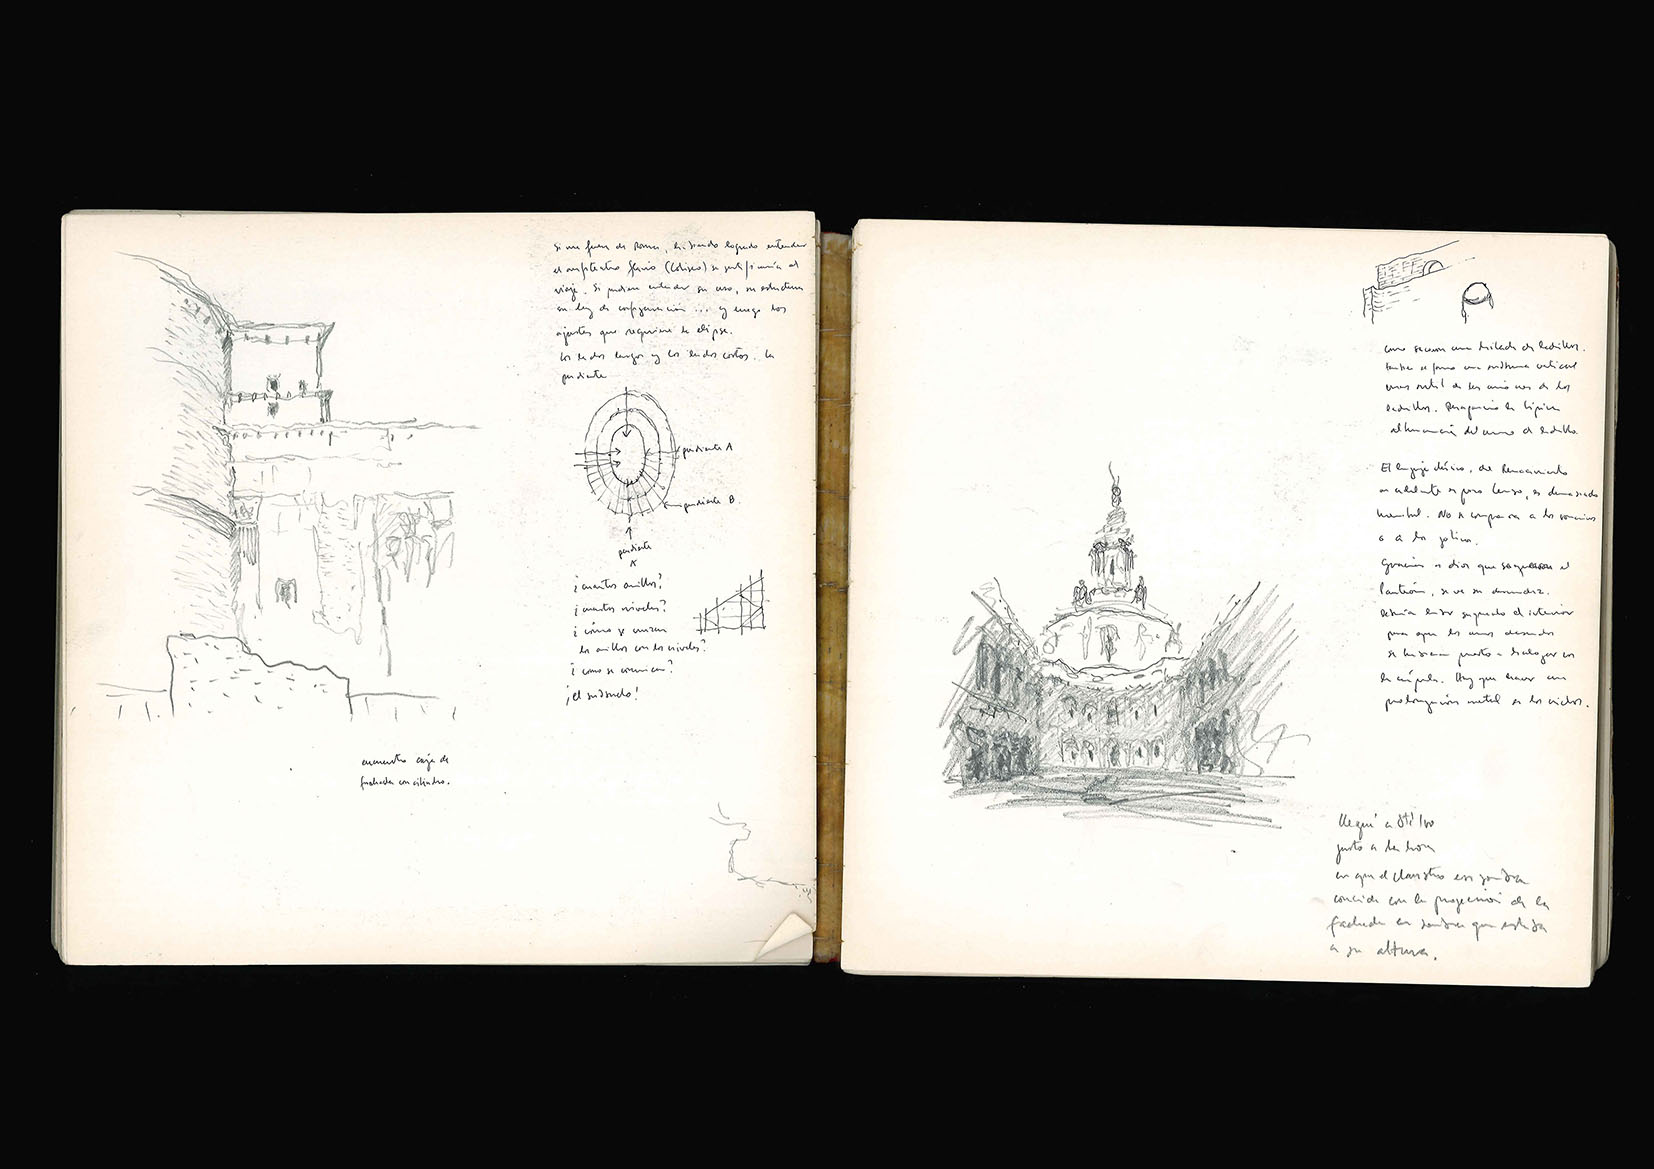 Si me fuera de Roma, habiendo logrado entender
el anfiteatro flavio (Coliseo) se justificaría el
viaje. Si pudiera entender su uso, su estructura
su ley de configuración ... y luego los
ajustes que requiere la elipse.
Los lados largos y los lados cortos. La
pendiente
pendiente A
pendiente B.
pendiente
A
¿cuántos anillos?
¿cuántos niveles?
¿cómo se cruzan
los anillos con los niveles?
¿como se comunican?
¡el subsuelo!
encuentro caja de
fachada con cilindro.
una hilada de ladrillos.
se forma una
más sutil de las uniones de los
ladrillos. la típica
del muro de ladrillo
El lenguaje clásico, del Renacimiento
en adelante es poco tenso, es demasiado
mental. No se compara a los romanos
o a los góticos.
Gracias a dios que saquearon el
Panteón, se ve su desnudez.
Debería haber saqueado el interior
para que los muros desnudos
se hubieran puesto a dialogar con
la cúpula. Hay que hacer una
prolongación mental de los nichos.
llegué a Sti Ivo
justo a la hora
en que el claustro
coincide con la proyección de la
fachada en sombra que
a su altura.